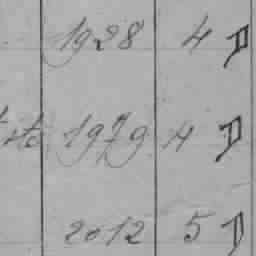 1928 4 D
1979 4 D
2012 5 D